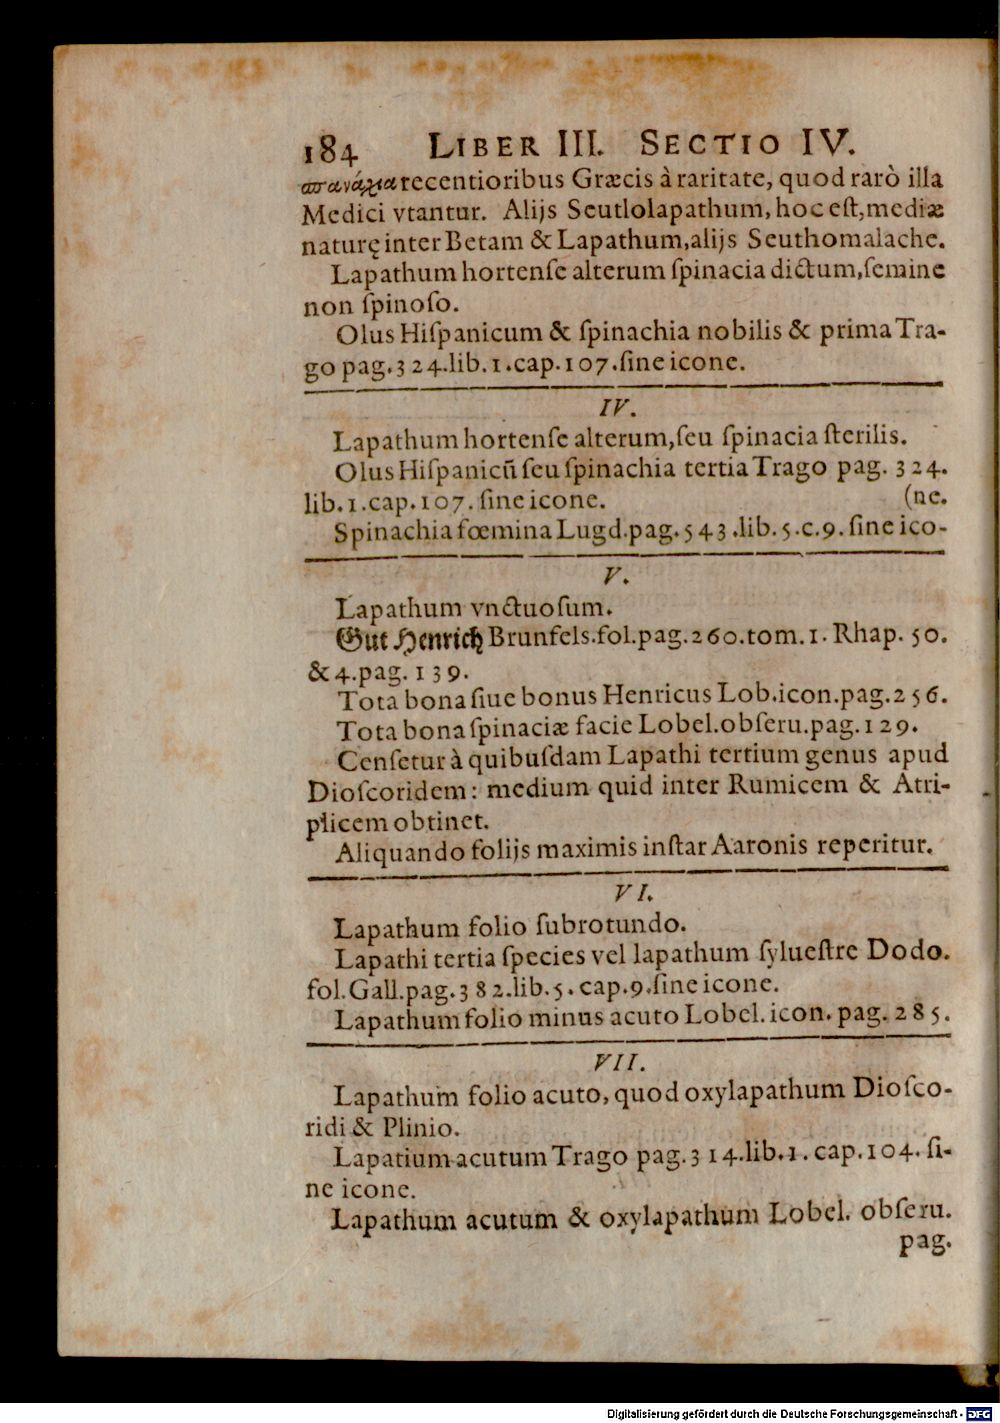 184 LIBER III. SECTIO IV.
σπανάχια recentioribus Græcis à raritate, quod rarò illa
Medici vtantur. Alijs Seutlolapathum, hoc eſt, mediæ
naturę inter Betam & Lapathum, alijs Seuthomalache.
Lapathum hortenſe alterum ſpinacia dictum, ſemine
non ſpinoſo.
Olus Hiſpanicum & ſpinachia nobilis & prima Tra-
go pag. 324. lib. 1. cap. 107. ſine icone.
IV.
Lapathum hortenſe alterum, ſeu ſpinacia ſterilis.
Olus Hiſpanicũ ſeu ſpinachia tertia Trago pag. 324.
lib. 1. cap. 107. ſine icone. (ne.
Spinachia fœmina Lugd. pag. 543. lib. 5. c. 9. ſine ico-
V.
Lapathum vnctuoſum.
Gut Henrich Brunfels. fol. pag. 260. tom. 1. Rhap. 50.
& 4. pag. 139.
Tota bona ſiue bonus Henricus Lob. icon. pag. 256.
Tota bona ſpinaciæ facie Lobel. obſeru. pag. 129.
Cenſetur à quibuſdam Lapathi tertium genus apud
Dioſcoridem: medium quid inter Rumicem & Atri-
plicem obtinet.
Aliquando folijs maximis inſtar Aaronis reperitur.
VI.
Lapathum folio ſubrotundo.
Lapathi tertia ſpecies vel lapathum ſylueſtre Dodo.
fol. Gall. pag. 382. lib. 5. cap. 9. ſine icone.
Lapathum folio minus acuto Lobel. icon. pag. 285.
VII.
Lapathum folio acuto, quod oxylapathum Dioſco-
ridi & Plinio.
Lapatium acutum Trago pag. 314. lib. 1. cap. 104. ſi-
ne icone.
Lapathum acutum & oxylapathum Lobel. obſeru.
pag.
Digitalisierung gefördert durch die Deutsche Forschungsgemeinschaft - DFG